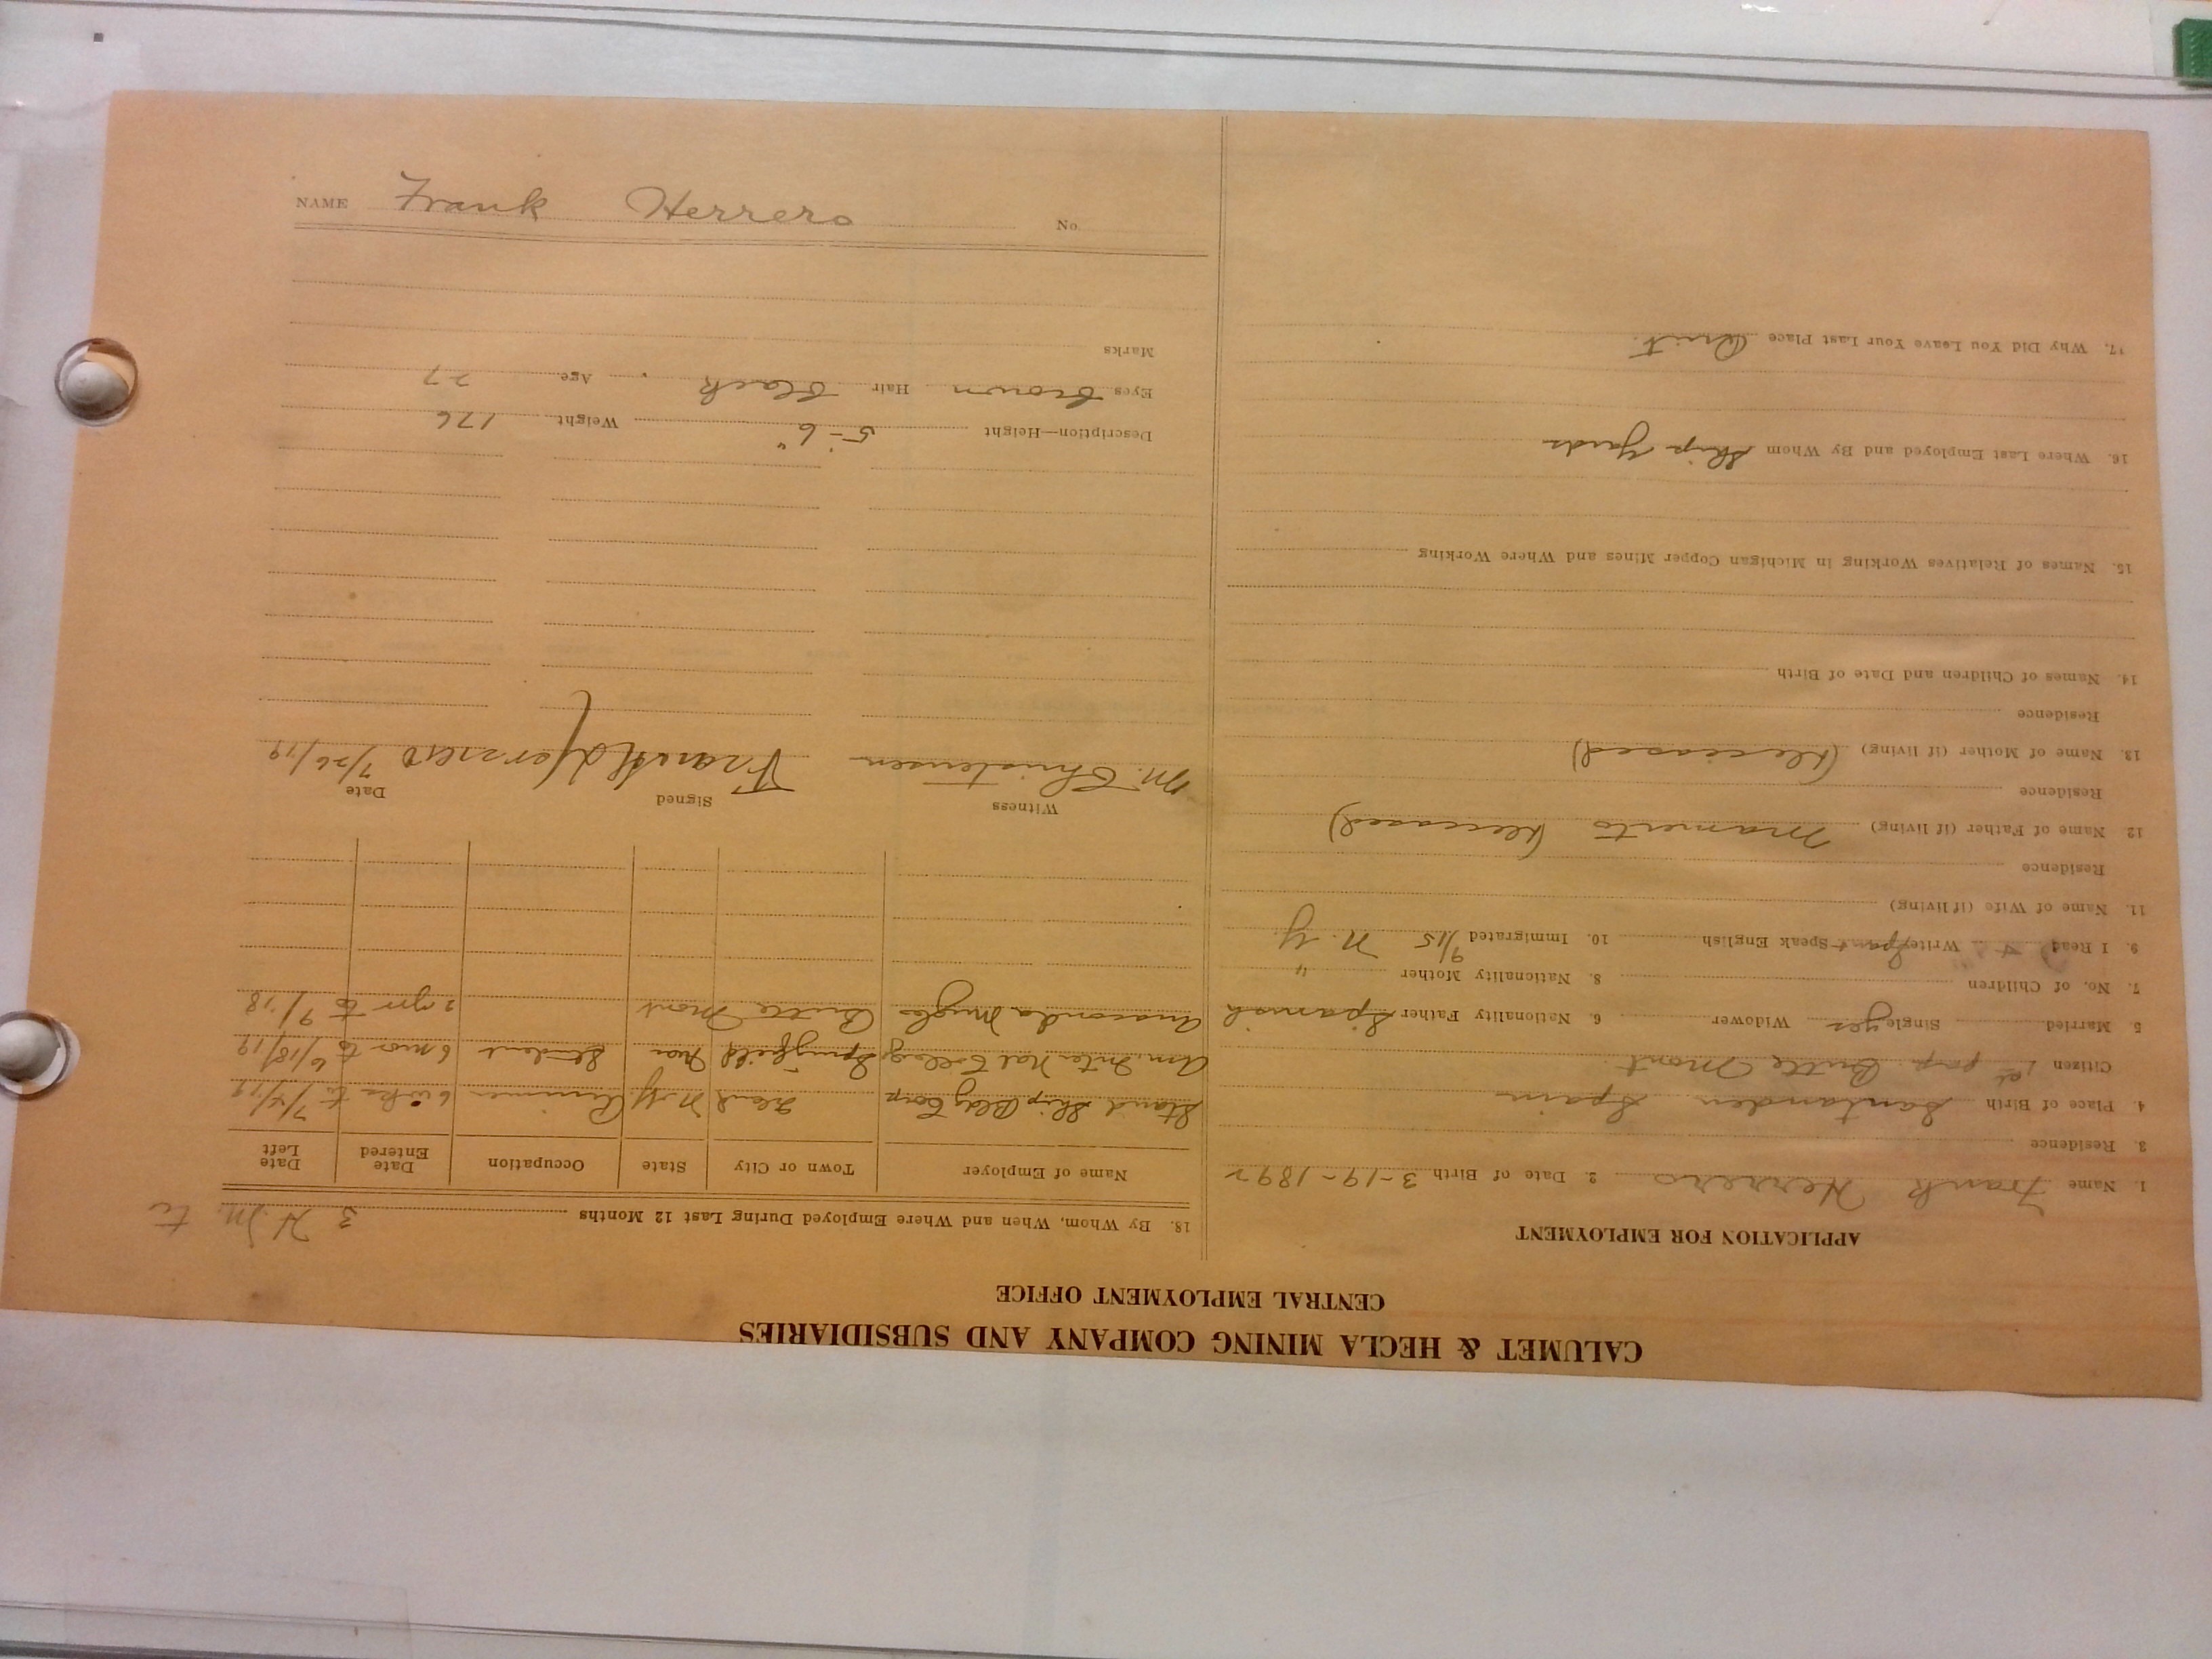 CALUMET & HECLA MINING COMPANY AND SUBSIDIARIES
CENTRAL EMPLOYMENT OFFICE
APPLICATION FOR EMPLOYMENT
1. Name Frank Herrero 2. Date of Birth 3-19-1892
3. Residence
4. Place of Birth Santander Spain
Citizen 1st pap. Butte Mont.
5. Married Single yes Widower 6. Nationality Father Spanish
7. No. of Children 8. Nationality Mother "
9. I Read Write Span + Speak English 10. Immigrated 9/15 N.Y.
11. Name of Wife (if living)
Residence
12 Name of Father (if living) Mamerto (deceased)
Residence
13. Name of Mother (if living) (deceased)
Residence
14. Names of Children and Date of Birth
15. Names of Relatives Working in Michigan Copper Mines and Where Working
16. Where Last Employed and By Whom Ship Yards
17. Why Did You Leave Your Last Place Quit.
18. By Whom, When and Where Employed During Last 12 Months 3 H.M.
Name of Employer Town or City State Occupation Date Entered Date Left
Stand Ship Bldg Corp N.Y. 6 wks to 7/4/19
Am. Inter Nat College Springfield Mas Student 6 mos to 6/18/19
Anaconda Mng Co Butte Mont 2 yrs to 9/18
Witness Signed Date
M. Christensen Frank Herrero 7/26/19
Description—Height 5'-6" Weight 176
Eyes brown Hair black Age 27
Marks
NAME Frank Herrero No.